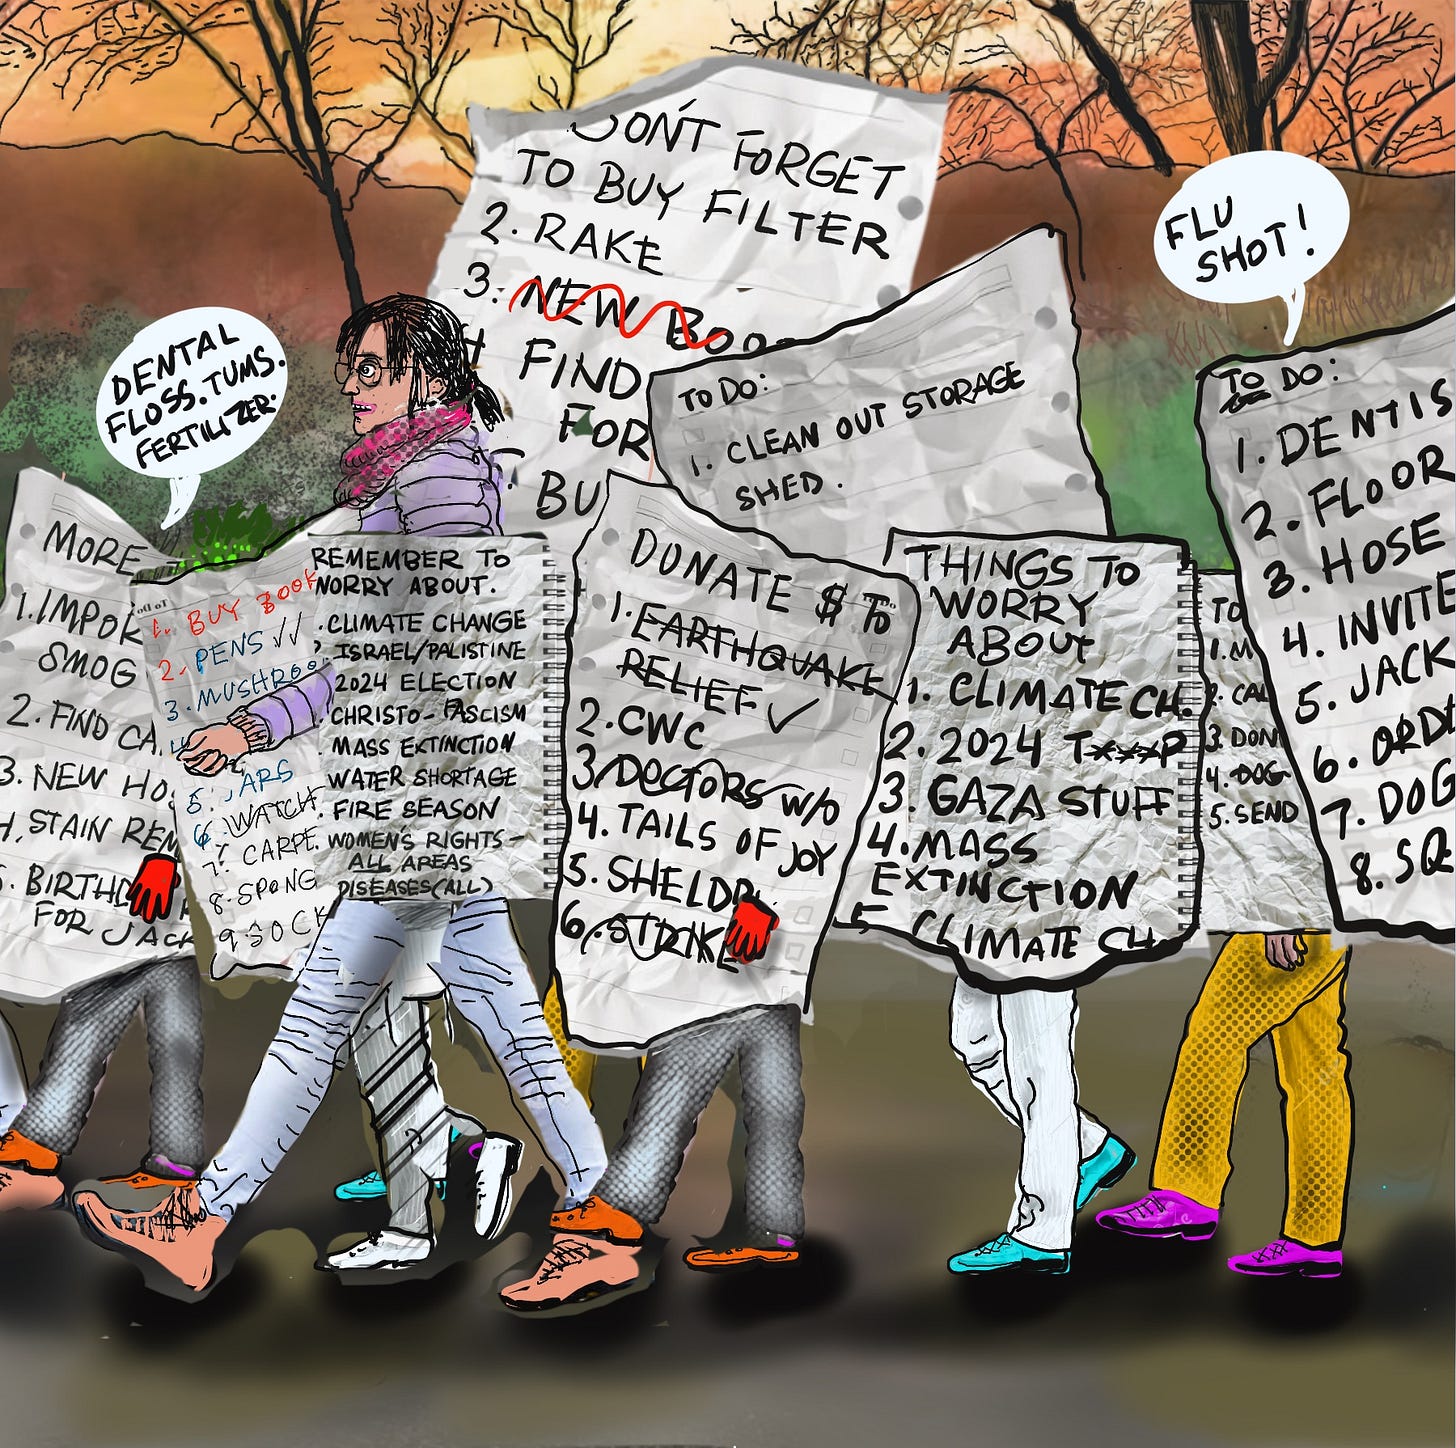 DON'T FORGET
TO BUY FILTER
2. RAKE
3. NEW
FIND
FOR
BU
FLU
SHOT!
DENTAL
FLOSS. TUMS.
FERTILIZER.
TO DO:
1. CLEAN OUT STORAGE
SHED.
TO DO:
1. DENTIS
2. FLOOR
3. HOSE
4. INVITE
5. JACK
6. ORDE
7. DOG
8. SQ
MORE
1. IMPOR
SMOG
2. FIND CA
3. NEW HO
4. STAIN REM
BIRTHD
FOR JACK
To Do
1. BUY BOOK
2. PENS ✓✓
3. MUSHROO
5.
6. WATCH
7. CARPE
8. SPONG
9. SOCK
REMEMBER TO
WORRY ABOUT.
. CLIMATE CHANGE
ISRAEL/PALISTINE
2024 ELECTION
. CHRISTO-FASCISM
. MASS EXTINCTION
. WATER SHORTAGE
. FIRE SEASON
WOMEN'S RIGHTS-
ALL AREAS
DISEASES (ALL)
DONATE $ TO
1. EARTHQUAKE
RELIEF ✓
2. CWC
3. DOCTORS W/O
4. TAILS OF JOY
5. SHELDR
6. STRIKE
THINGS TO
WORRY
ABOUT
1. CLIMATE CH.
2. 2024 T***P
3. GAZA STUFF
4. MASS
EXTINCTION
CLIMATE CH.
TO
1. M
2. CAL
3. DON
4. DOG
5. SEND